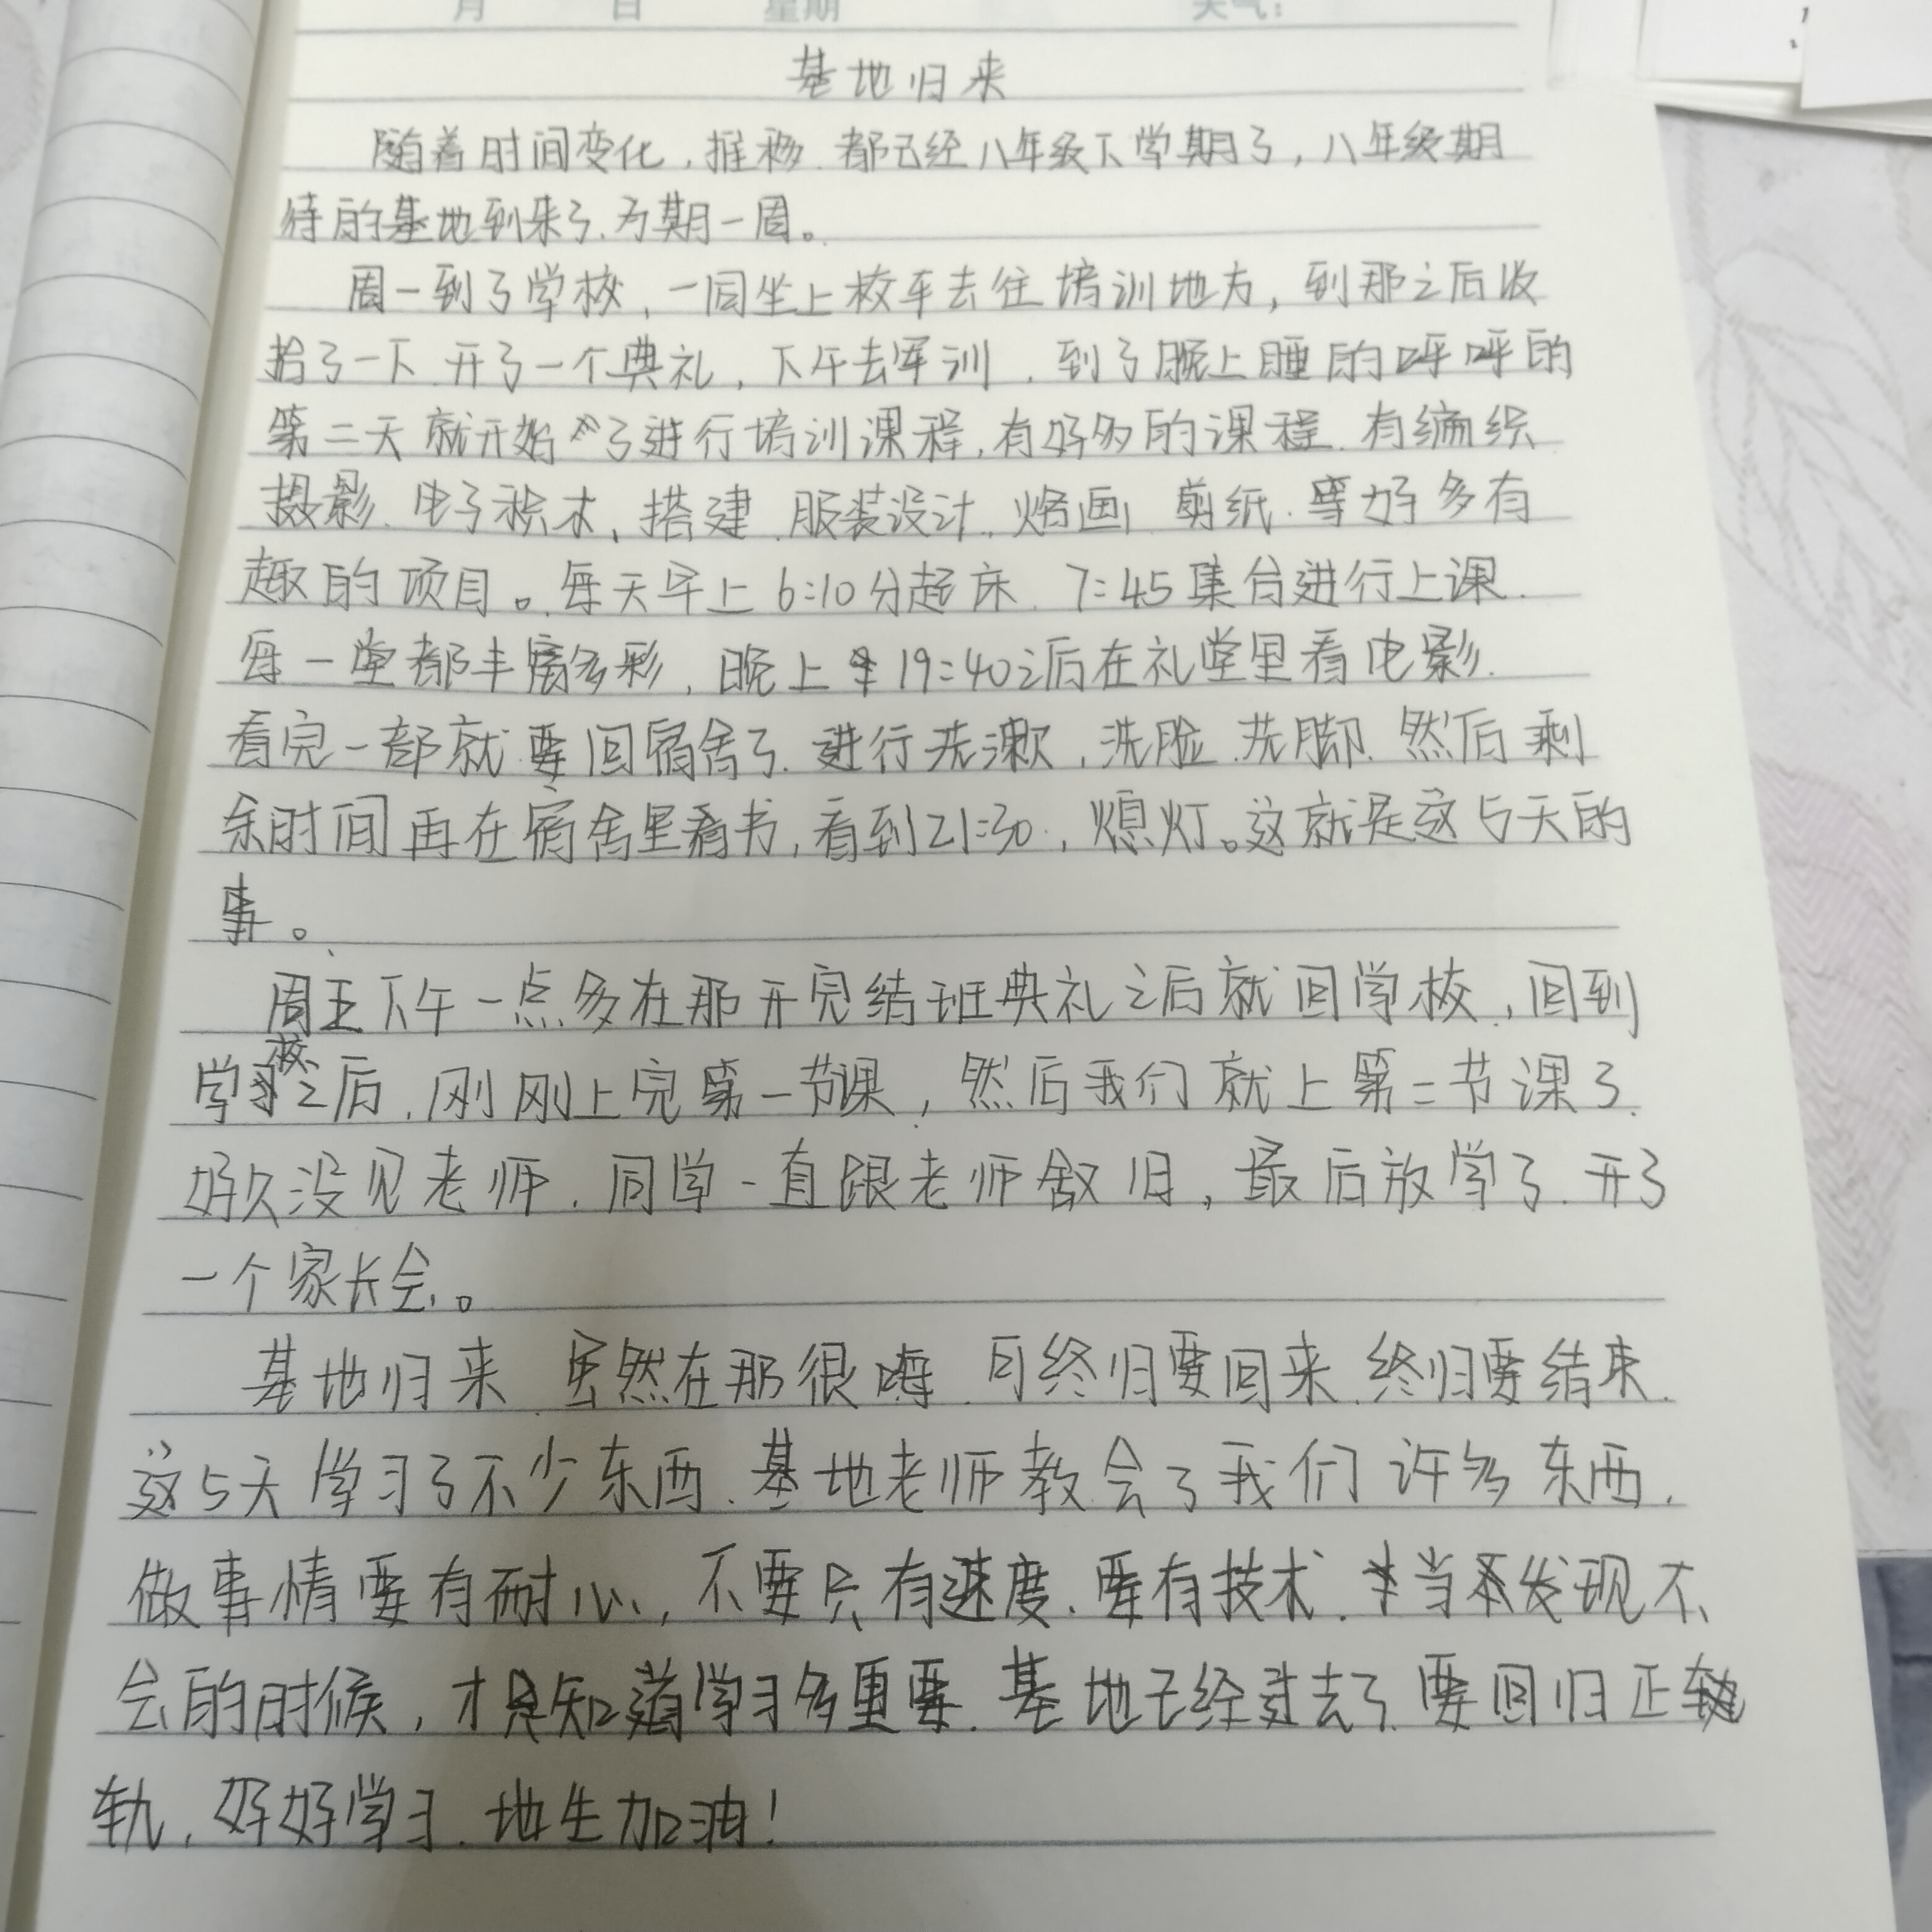 月 日 星期 天气：
基地归来
随着时间变化，推移，都已经八年级下学期了，八年级期
待的基地到来了，为期一周。
周一到了学校，一同坐上校车去往培训地方，到那之后收
拾了一下，开了一个典礼，下午去军训，到了晚上睡的呼呼的
第二天就开始了进行培训课程，有好多的课程，有编织
摄影、电子积木、搭建、服装设计、烙画、剪纸、等好多有
趣的项目。每天早上6:10分起床，7:45集合进行上课.
每一堂都丰富多彩，晚上19:40之后在礼堂里看电影.
看完一部就要回宿舍了，进行洗漱，洗脸、洗脚，然后剩
余时间再在宿舍里看书，看到21:30，熄灯。这就是这5天的
事。
周五下午一点多在那开完结班典礼之后就回学校，回到
学校之后，刚刚上完第一节课，然后我们就上第二节课了.
好久没见老师，同学一直跟老师叙旧，最后放学了，开了
一个家长会。
基地归来，虽然在那很嗨，可终归要回来，终归要结束.
这5天学习了不少东西，基地老师教会了我们许多东西，
做事情要有耐心，不要只有速度，要有技术，当发现不
会的时候，才知道学习多重要，基地已经过去了，要回归正
轨，好好学习，地生加油！